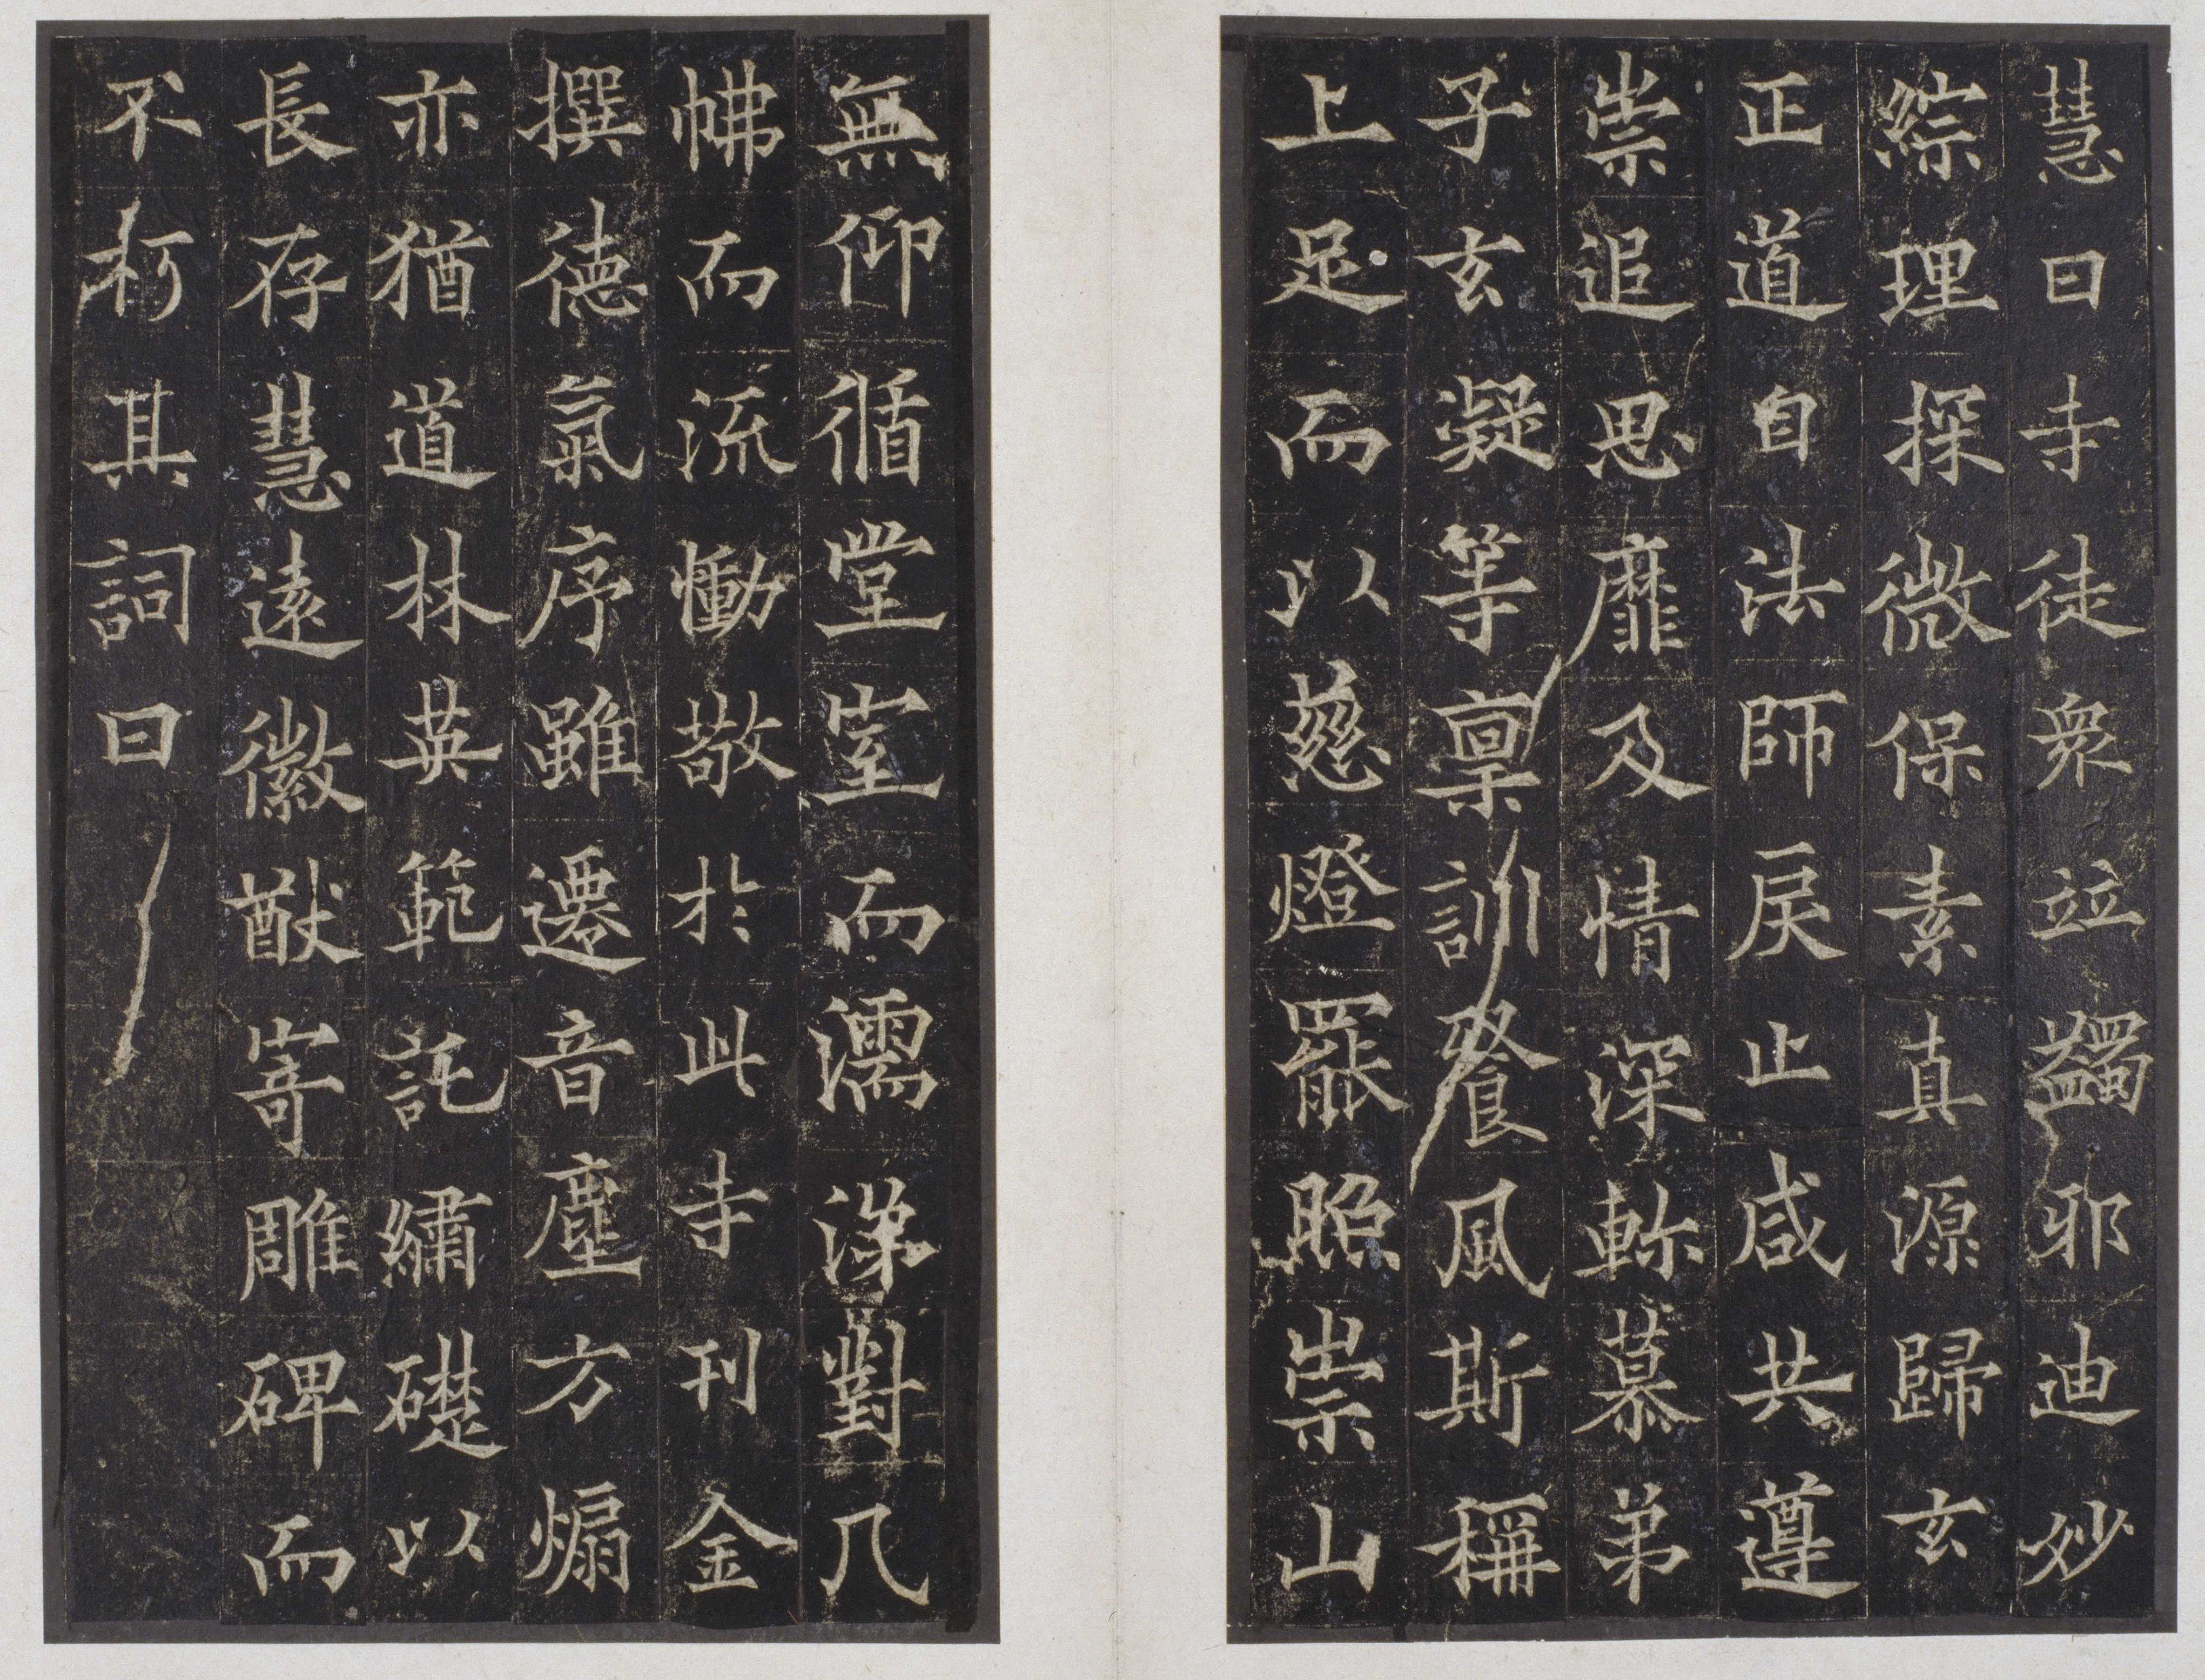 慧曰寺徒衆竝蠲邪迪妙
綜理探微保素真源歸玄
正道自法師戾止咸共遵
崇追思靡及情深軫慕弟
子玄凝等禀訓飡風斯稱
上足而以慈燈罷照崇山
無仰循堂室而濡涕對几
怫而流慟敬於此寺刊金
撰德氣序雖遷音塵方煽
亦猶道林英範託繡礎以
長存慧遠徽猷寄雕碑而
不朽其詞曰